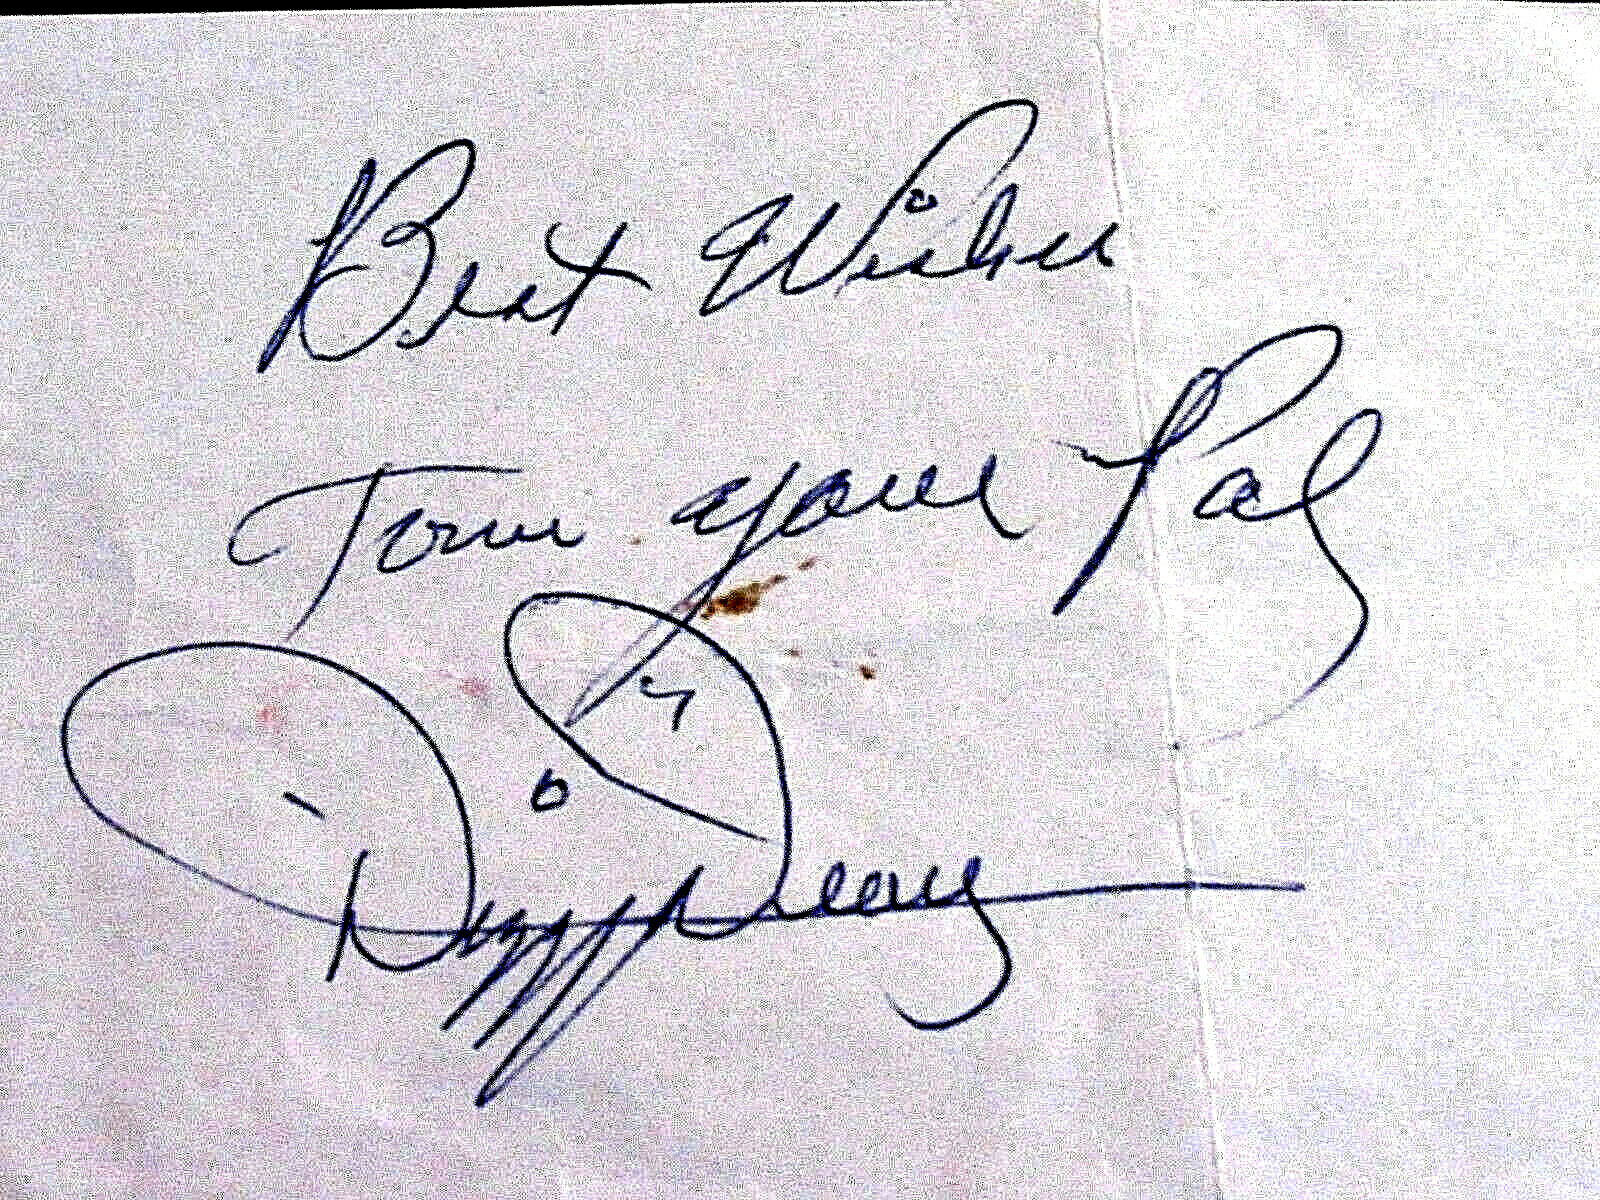 Best Wishes
From your Pal
Dizzy Dean